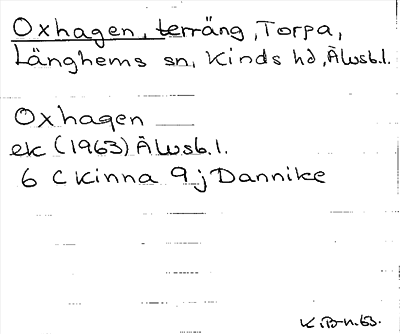 Oxhagen, terräng, Torpa,
Länghems sn, Kinds hd, Älvsb.l.
Oxhagen
ek (1963) Älvsb.l.
6 C Kinna 9j Dannike